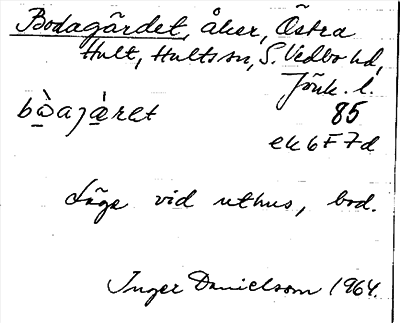 Bodagärdet, åker, Östra
Hult, Hults sn, S. Vedbo hd,
Jönk. l.
bò̠ajà̠ret 85
ek 6 F 7 d
Läge vid uthus, bod.
Inger Danielsson 1964.